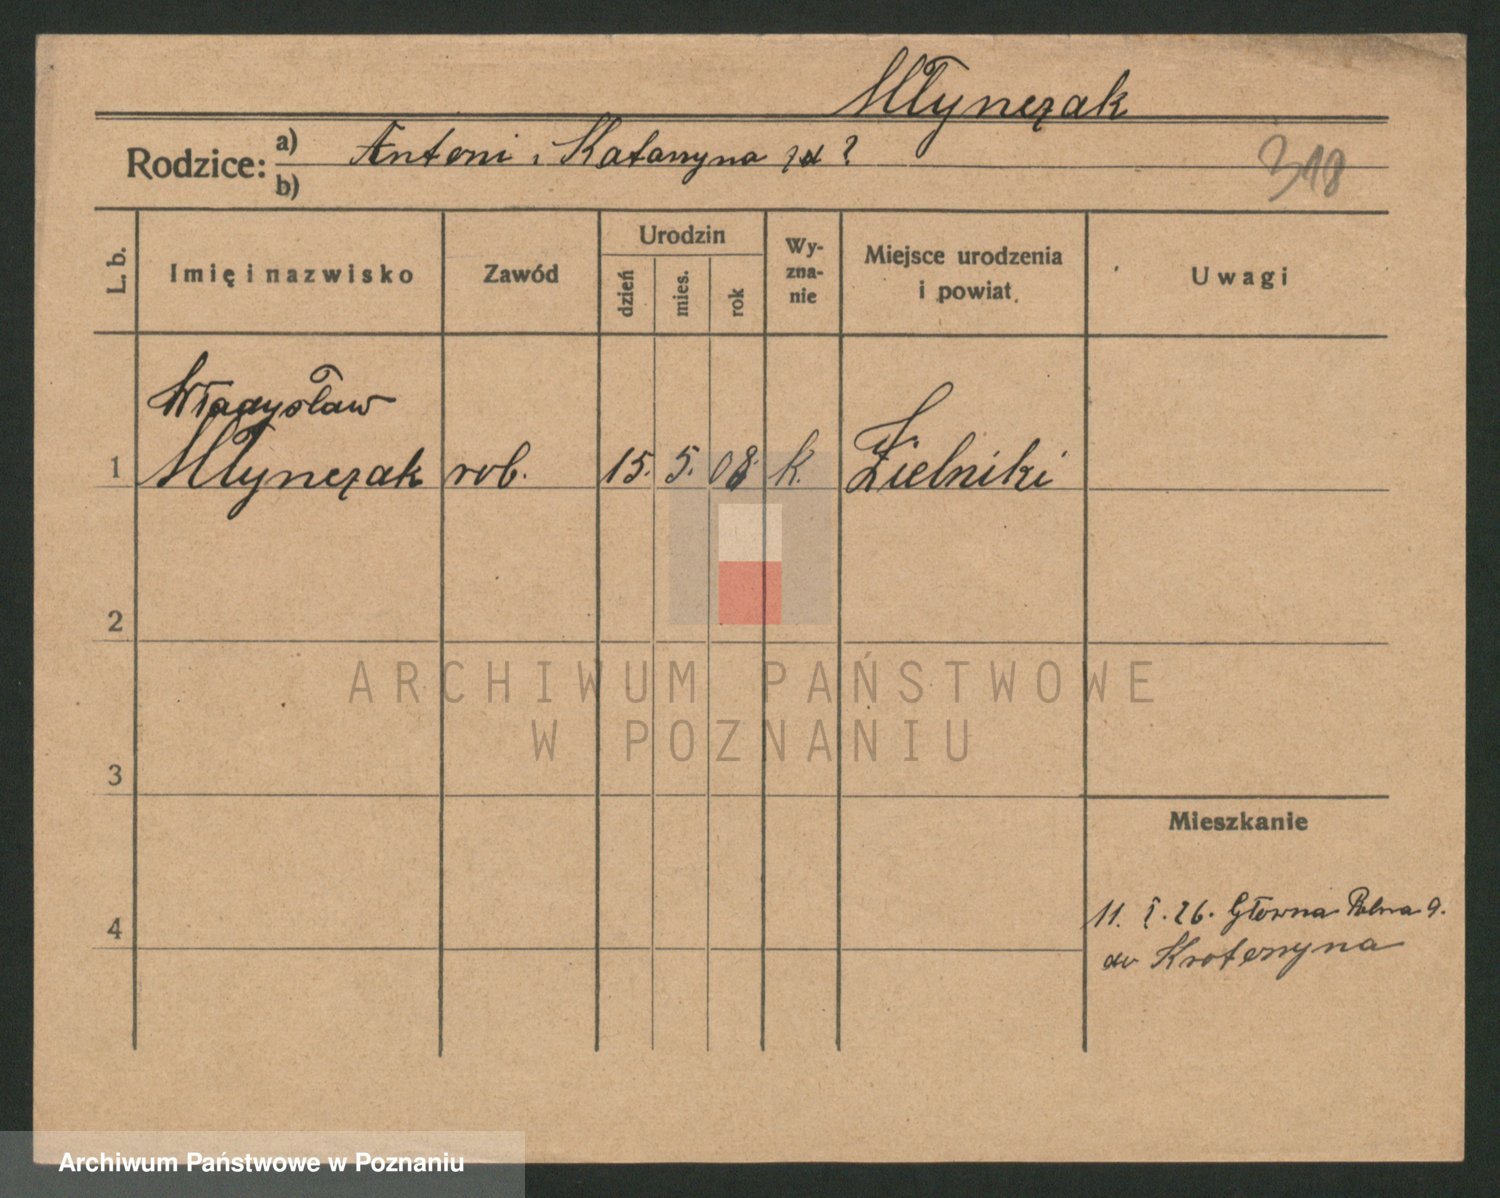 Młynczak
Rodzice: a) Antoni i Katarzyna zd ?
b)
318
L. b.
Imię i nazwisko
Zawód
Urodzin
dzień
mies.
rok
Wy-
zna-
nie
Miejsce urodzenia
i powiat
Uwagi
Władysław
1 Młynczak rob. 15. 5. 08. k. Zielniki
2
ARCHIWUM PAŃSTWOWE
W POZNANIU
3
Mieszkanie
4
11. I. 26. Główna Polna 9.
do Krotoszyna
Archiwum Państwowe w Poznaniu